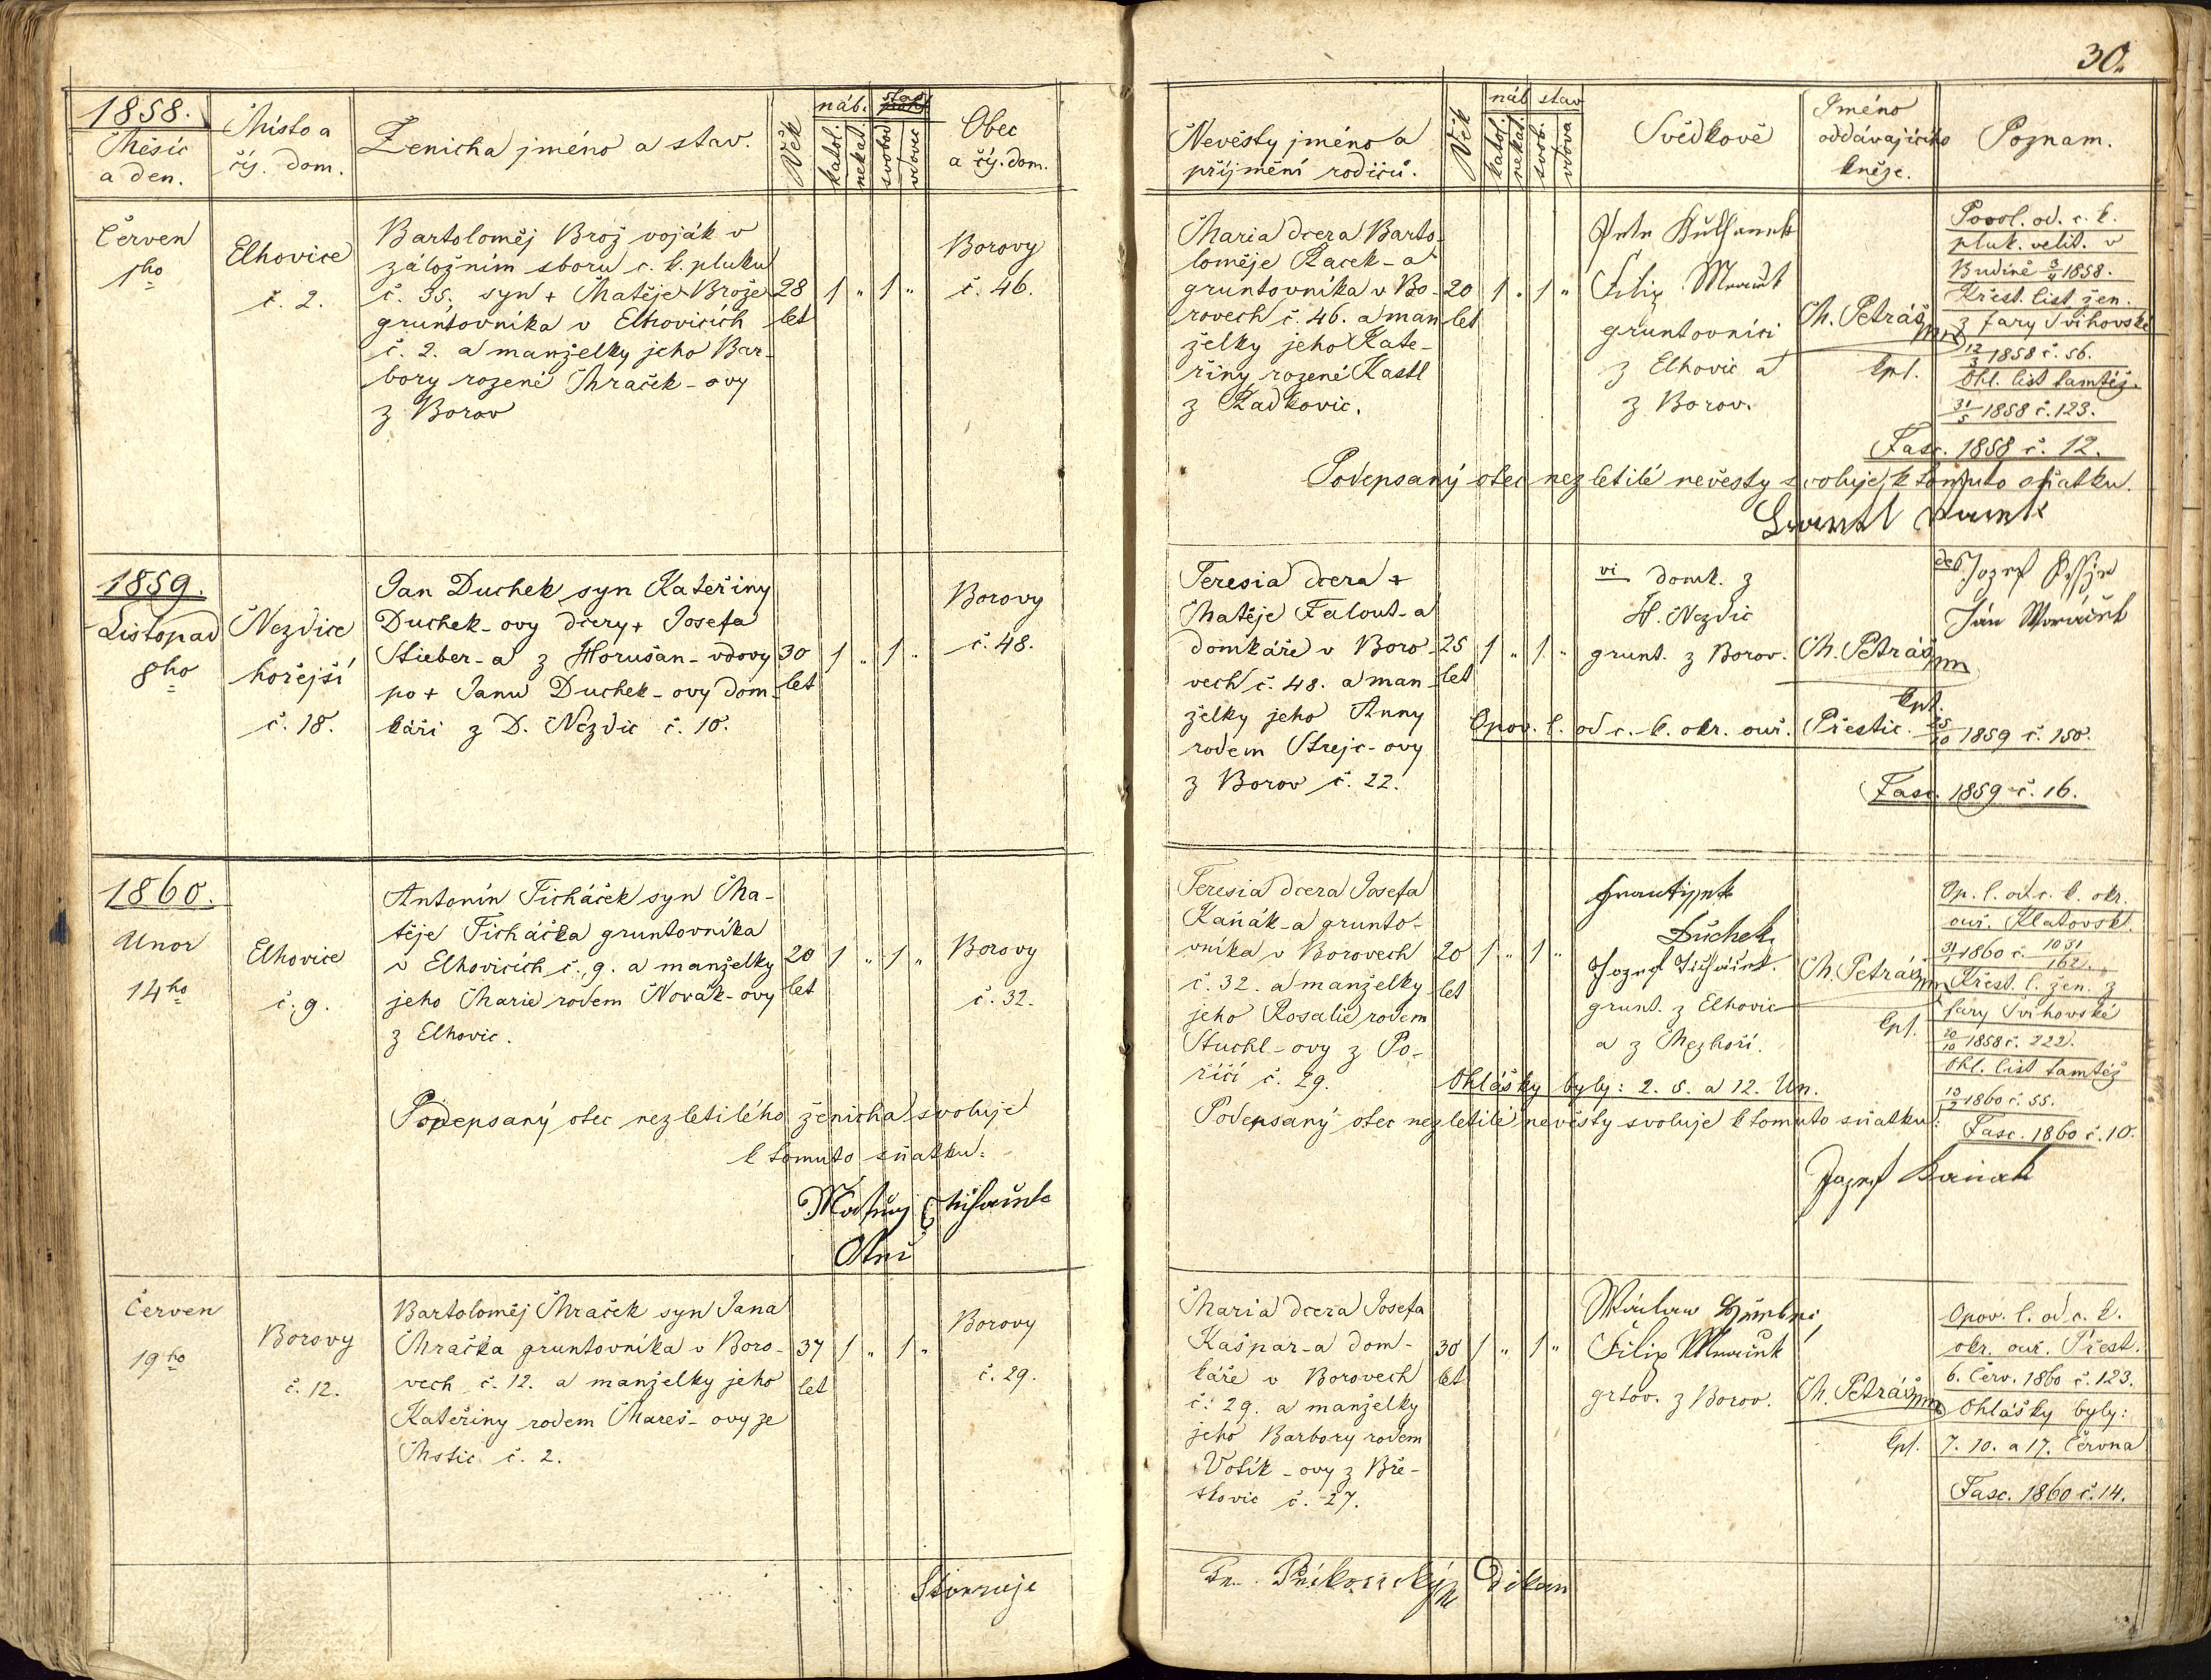 30.
1858.
Měsíc
a den.
Místo a
čís. dom.
Ženicha jméno a stav.
Věk
náb. stav
katol. nekat. svobod vdovec
Obec
a čís. dom.
Nevěsty jméno a
příjmění rodičů.
Věk
náb stav
katol. nekat. svob. vdova
Svědkové
Jméno
oddávajícího
kněze.
Poznam.
Červen
1ho
Elhovice
č. 2.
Bartoloměj Brož voják v
záložním sboru c. k. pluku
č. 35. syn + Matěje Brože
gruntovníka v Elhovicích
č. 2. a manželky jeho Bar-
bory rozené Mraček-ovy
z Borov
28
let
1 " 1 "
Borovy
č. 46.
Maria dcera Barto-
loměje Racek-a
gruntovníka v Bo-
rovech č. 46. a man-
želky jeho Kate-
řiny rozené Kastl
z Radkovic.
20
let
1 " 1 "
Filip
gruntovníci
z Elhovic a
z Borov.
M. Petráš
kpl.
Povol. od. c. k.
pluk. velit. v
Budíně 3/4 1858.
Křest. list žen.
z fary Švihovské
12/3 1858 č. 56.
Ohl. list tamtéž.
31/5 1858 č. 123.
Fasc. 1858 č. 12.
Podepsaný otec nezletilé nevěsty svoluje k tomuto sňatku.
1859.
Listopad
8ho
Nezdice
hořejší
č. 18.
Jan Duchek syn Kateřiny
Duchek-ovy dcery + Josefa
Stieber-a z Horušan-vdovy
po + Janu Duchek-ovy dom-
káři z D. Nezdic č. 10.
30
let
1 " 1 "
Borovy
č. 48.
Teresia dcera +
Matěje Falout-a
domkáře v Boro-
vech č. 48. a man-
želky jeho Anny
rodem Strejc-ovy
z Borov č. 22.
25
let
1 " 1 "
vi domk. z
H. Nezdic
grunt. z Borov.
M. Petráš
kpl.
Jozef
Ján
Opov. l. od c. k. okr. ouř. Přestic. 25/10 1859 č. 150.
Fasc. 1859 č. 16.
1860.
Unor
14ho
Elhovice
č. 9.
Antonín Ticháček syn Ma-
těje Ticháčka gruntovníka
v Elhovicích č. 9. a manželky
jeho Marie rodem Novák-ovy
z Elhovic.
20
let
1 " 1 "
Borovy
č. 32.
Podepsaný otec nezletilého ženicha svoluje
k tomuto sňatku:
Teresia dcera Josefa
Kaňák-a grunto-
vníka v Borovech
č. 32. a manželky
jeho Rosalie rodem
Stuchl-ovy z Po-
říčí č. 29.
20
let
1 " 1 "
Frantissek
Duchek
Jozef Ticháček.
grunt. z Elhovic
a z Mezhoří.
M. Petráš
kpl.
Op. l. od c. k. okr.
ouř. Klatovsk.
31/1 1860 č. 1031/162.
Křest. l. žen. z
fary Švihovské
20/10 1858 č. 222.
Ohl. list tamtéž
13/2 1860 č. 55.
Fasc. 1860 č. 10.
Ohlášky byly: 2. 5. a 12. Un.
Podepsaný otec nezletilé nevěsty svoluje k tomuto sňatku:
Jozef Kaniak
Červen
19ho
Borovy
č. 12.
Bartoloměj Mraček syn Jana
Mračka gruntovníka v Boro-
vech č. 12. a manželky jeho
Kateřiny rodem Mareš-ovy ze
Mstic č. 2.
37
let
1 " 1 "
Borovy
č. 29.
Maria dcera Josefa
Kašpar-a dom-
káře v Borovech
č. 29. a manželky
jeho Barbory rodem
Votík-ovy z Bře-
skovic č. 27.
30
let
1 " 1 "
Filip
grtov. z Borov.
M. Petráš
kpl.
Opov. l. od c. k.
okr. ouř. Přest.
6. Červ. 1860 č. 123.
Ohlášky byly:
7. 10. a 17. Června
Fasc. 1860 č. 14.